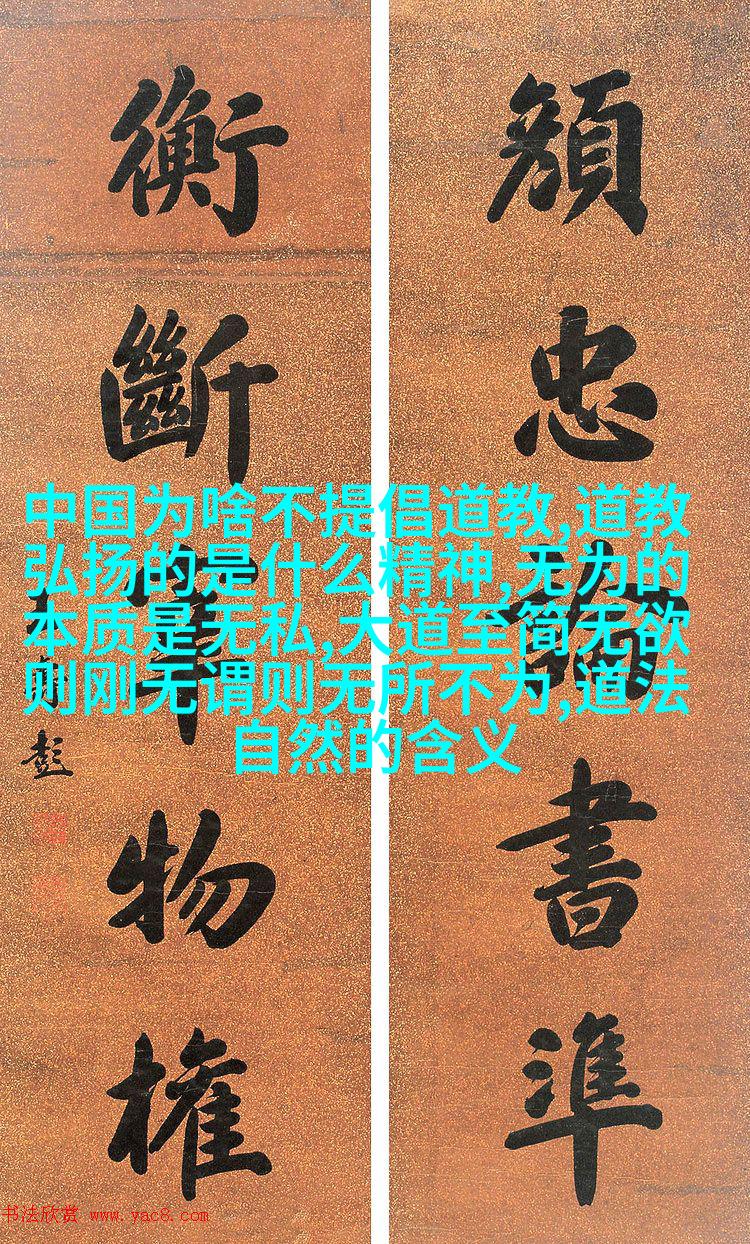 忠
書
準
衡
斷
物
權
彭
中国为啥不提倡道教,道教
弘扬的是什么精神,无为的
本质是无私,大道至简无欲
则刚无谓则无所不为,道法
自然的含义
书法欣赏 www.yac8.com